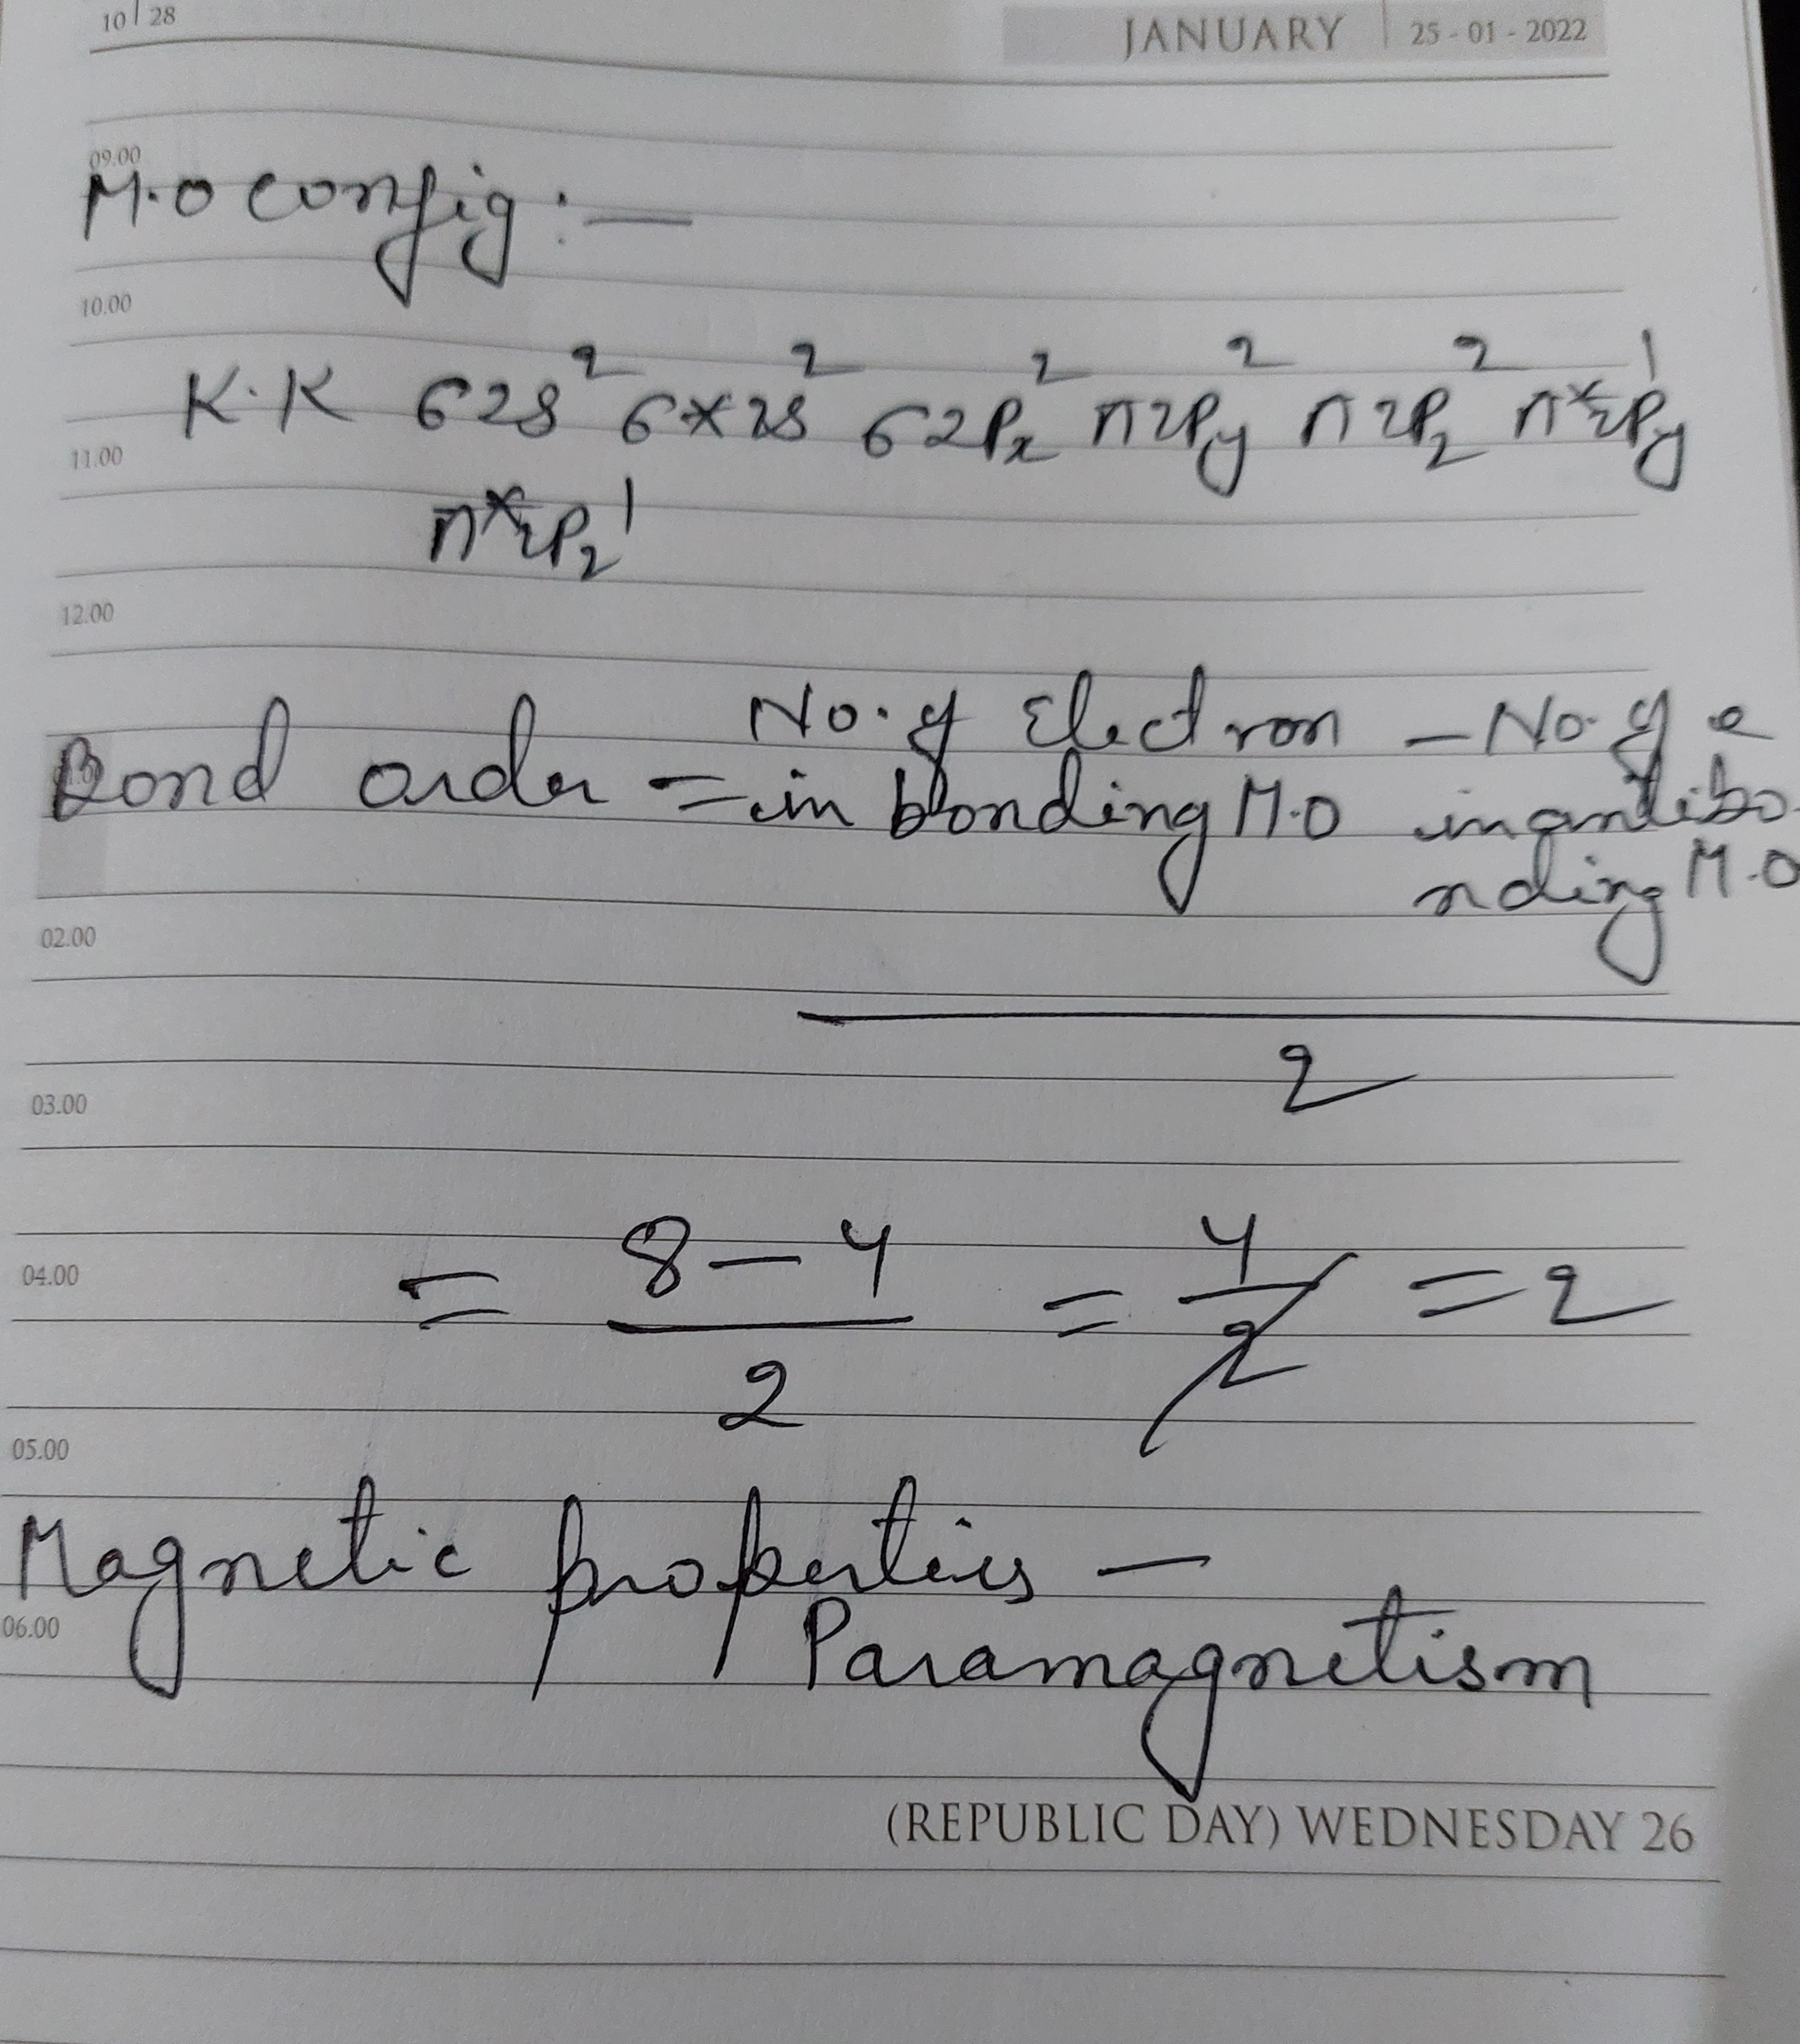 10 | 28
JANUARY | 25 - 01 - 2022
09.00
M.O config :—
10.00
K.K σ2s² σ*2s² σ2Px² π2Py² π2Pz² π*2Py¹
11.00
π*2Pz¹
12.00
No. of Electron – No. of e
Bond order = in bonding M.O in antibo-
nding M.O
02.00
2
03.00
04.00
= 8 – 4 / 2 = 4 / 2 = 2
05.00
Magnetic properties –
06.00
Paramagnetism
(REPUBLIC DAY) WEDNESDAY 26